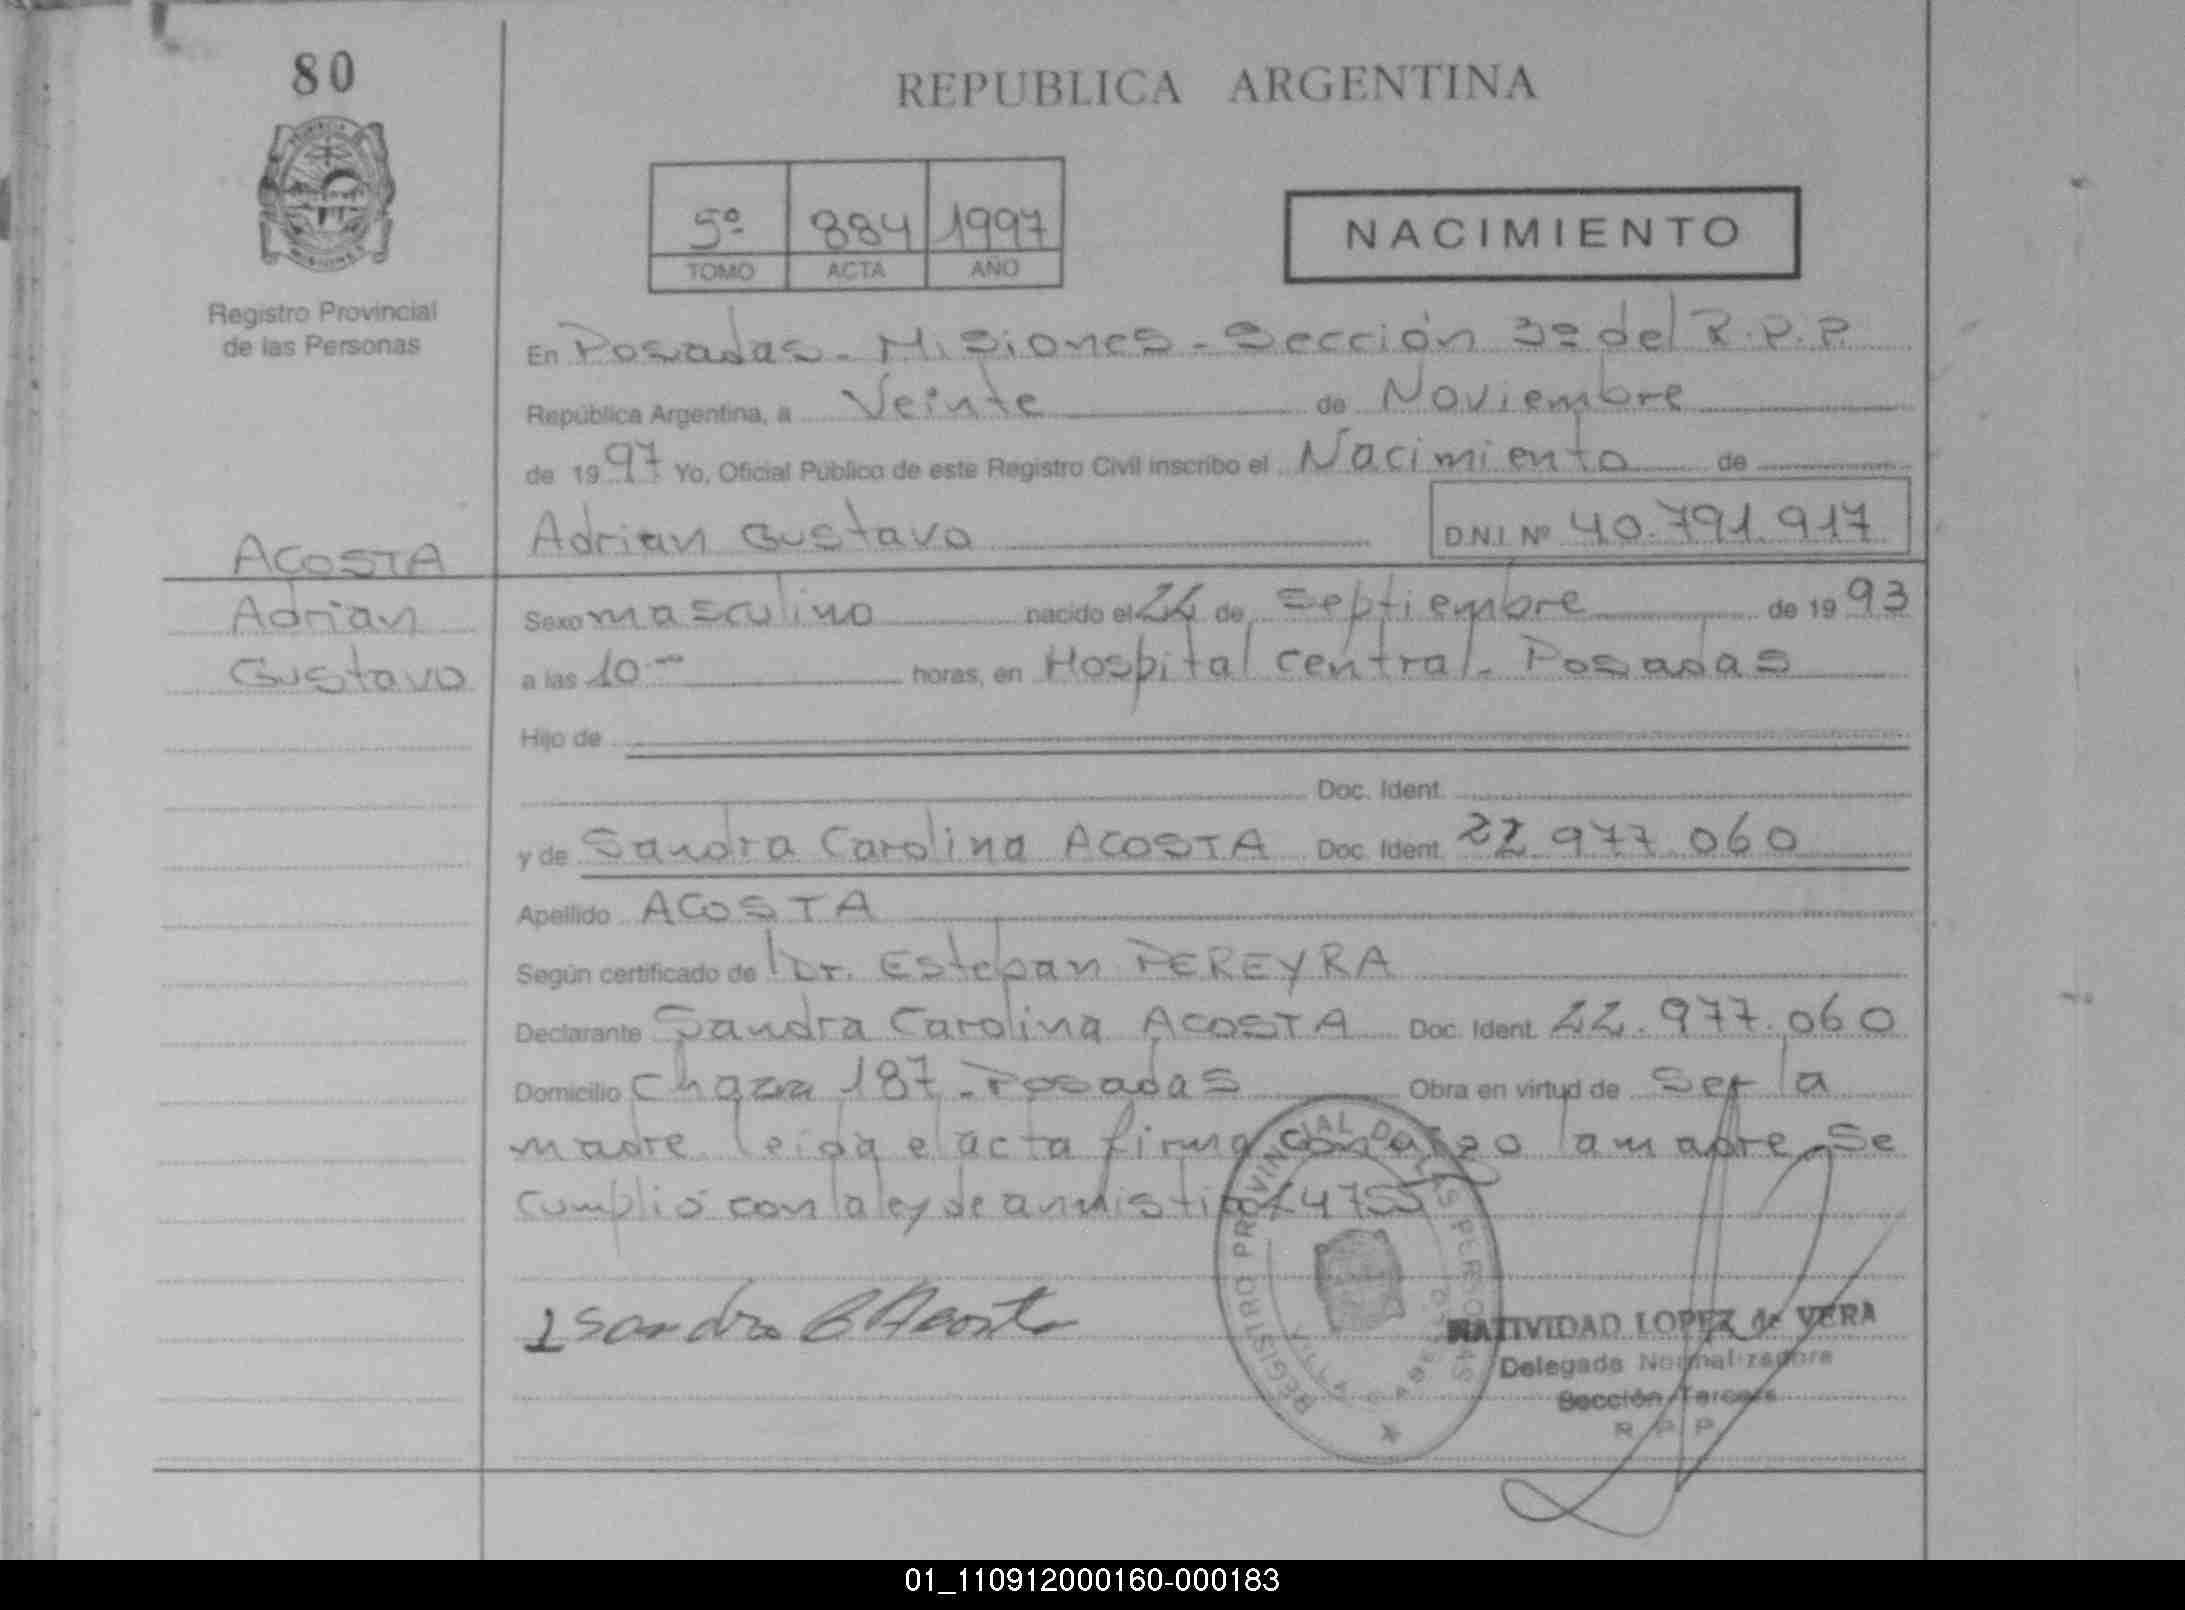 80
REPUBLICA ARGENTINA
5º 884 1997
TOMO ACTA AÑO
NACIMIENTO
Registro Provincial
de las Personas
En Posadas - Misiones - Sección 3º del R.P.P.
República Argentina, a Veinte de Noviembre
de 1997 Yo, Oficial Público de este Registro Civil inscribo el Nacimiento de
ACOSTA
Adrian
Gustavo
Adrian Gustavo D.N.I. Nº 40.791.917
Sexo masculino nacido el 22 de Septiembre de 1993
a las 10 horas, en Hospital Central - Posadas
Hijo de
Doc. Ident.
y de Sandra Carolina ACOSTA Doc. Ident. 22.977.060
Apellido ACOSTA
Según certificado de Dr. Esteban PEREYRA
Declarante Sandra Carolina ACOSTA Doc. Ident. 22.977.060
Domicilio 187 - Posadas Obra en virtud de ser la
madre leida el acta firma la madre - Se
cumplió con la ley de 24755
REGISTRO PROVINCIAL DE LAS PERSONAS
Sandra C Acosta
NATIVIDAD LOPEZ de VERA
Delegada Normalizadora
Sección Tercera
R P P
01_110912000160-000183